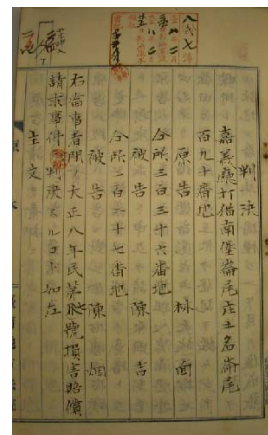 判決
嘉義廳打猫南堡崙尾庄土名崙尾
百九十番地
原告 林面
仝所三百三十六番地
被告 陳吉
仝所三百六十七番地
被告 陳烟
右當事者間ノ大正八年民第 號損害賠償
請求事件 判決スルコト如左
主文